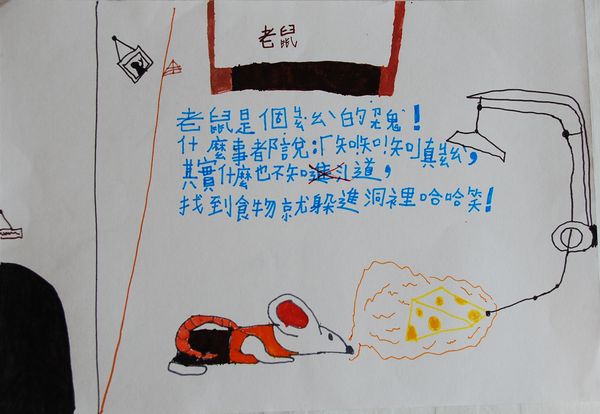 老鼠
老鼠是個的鬼!
什麼事都說:「知!知!知!」真,
其實什麼也不知道,
找到食物就躲進洞裡哈哈笑!